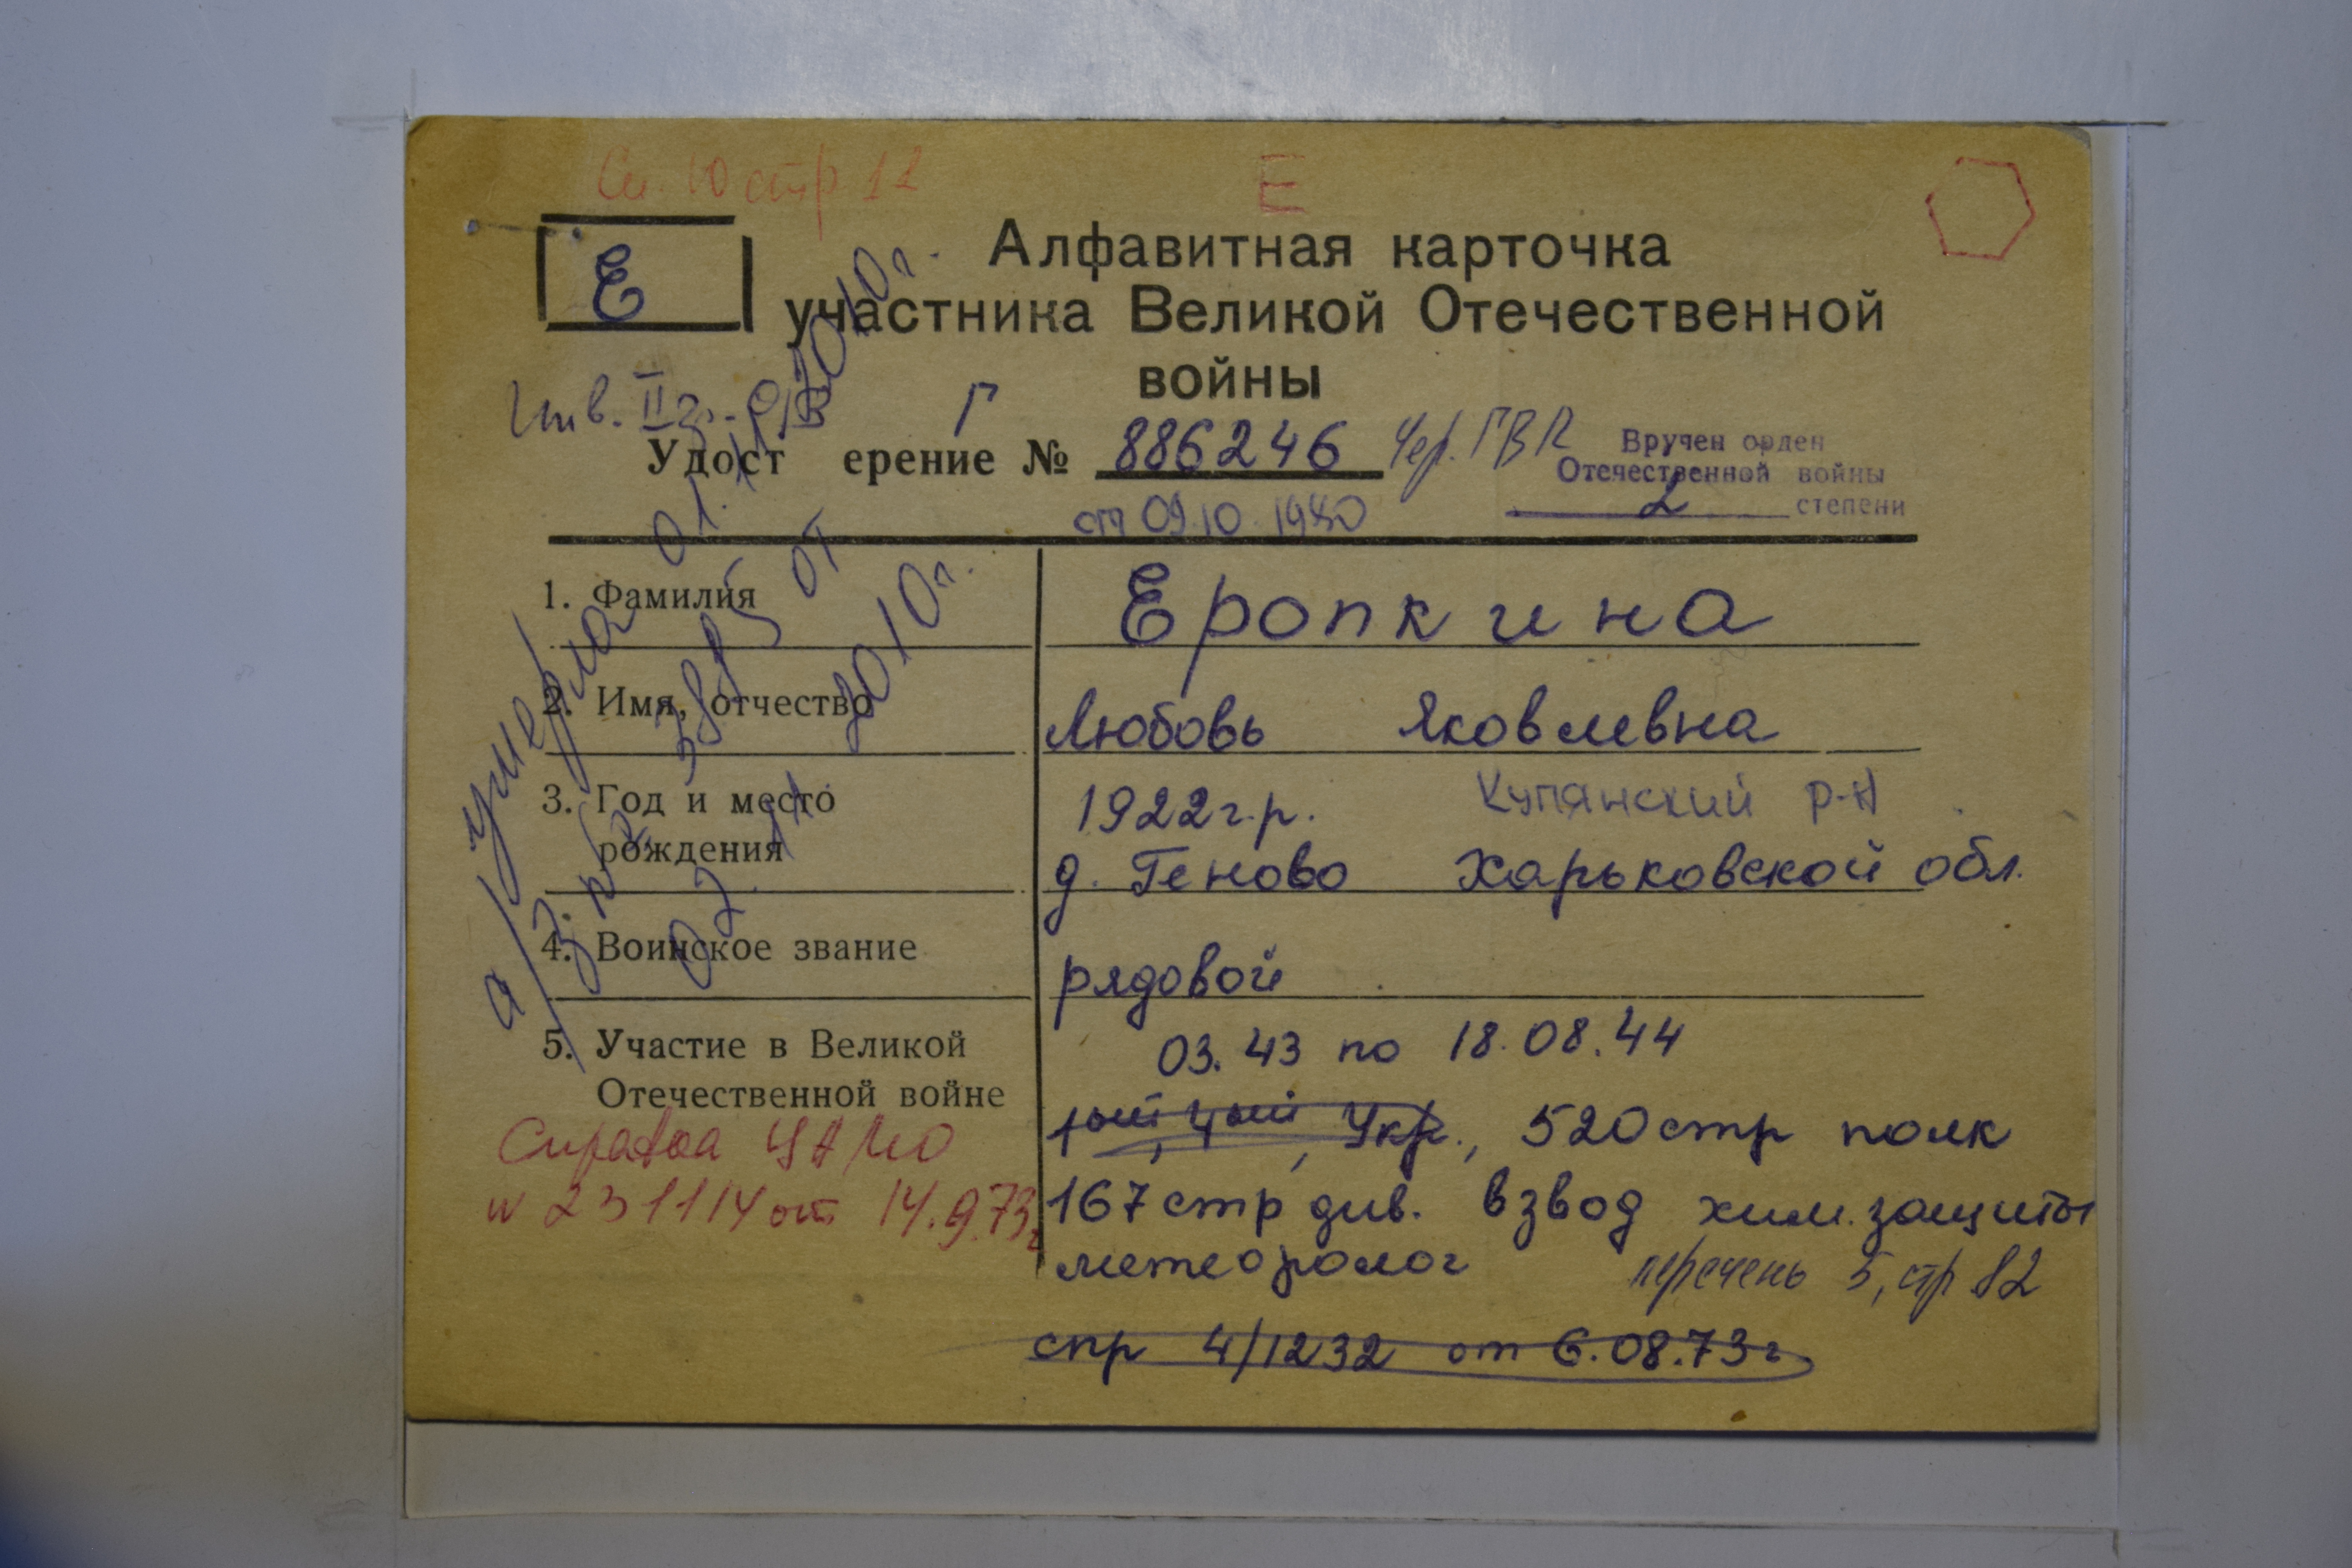 стр 12
Е
Е
Алфавитная карточка
участника Великой Отечественной
войны
Инв. II гр.
Г
Удост ерение № 886246
от 09.10.1980
Вручен орден
Отечественной войны
2 степени
умерла 01.11.2010г.
а/з № 3885 от
02.11.2010г.
1. Фамилия Еропкина
2. Имя, отчество Любовь Яковлевна
3. Год и место 1922г.р. Купянский р-н
рождения д. Геново Харьковской обл.
4. Воинское звание рядовой
5. Участие в Великой 03.43 по 18.08.44
Отечественной войне 1ый, 4ый, Укр., 520 стр полк
Справка ЦАМО
№ 231114 от 14.9.73г
167 стр див. взвод хим. защиты
метеоролог перечень 5, стр 82
спр 4/1232 от 6.08.73г